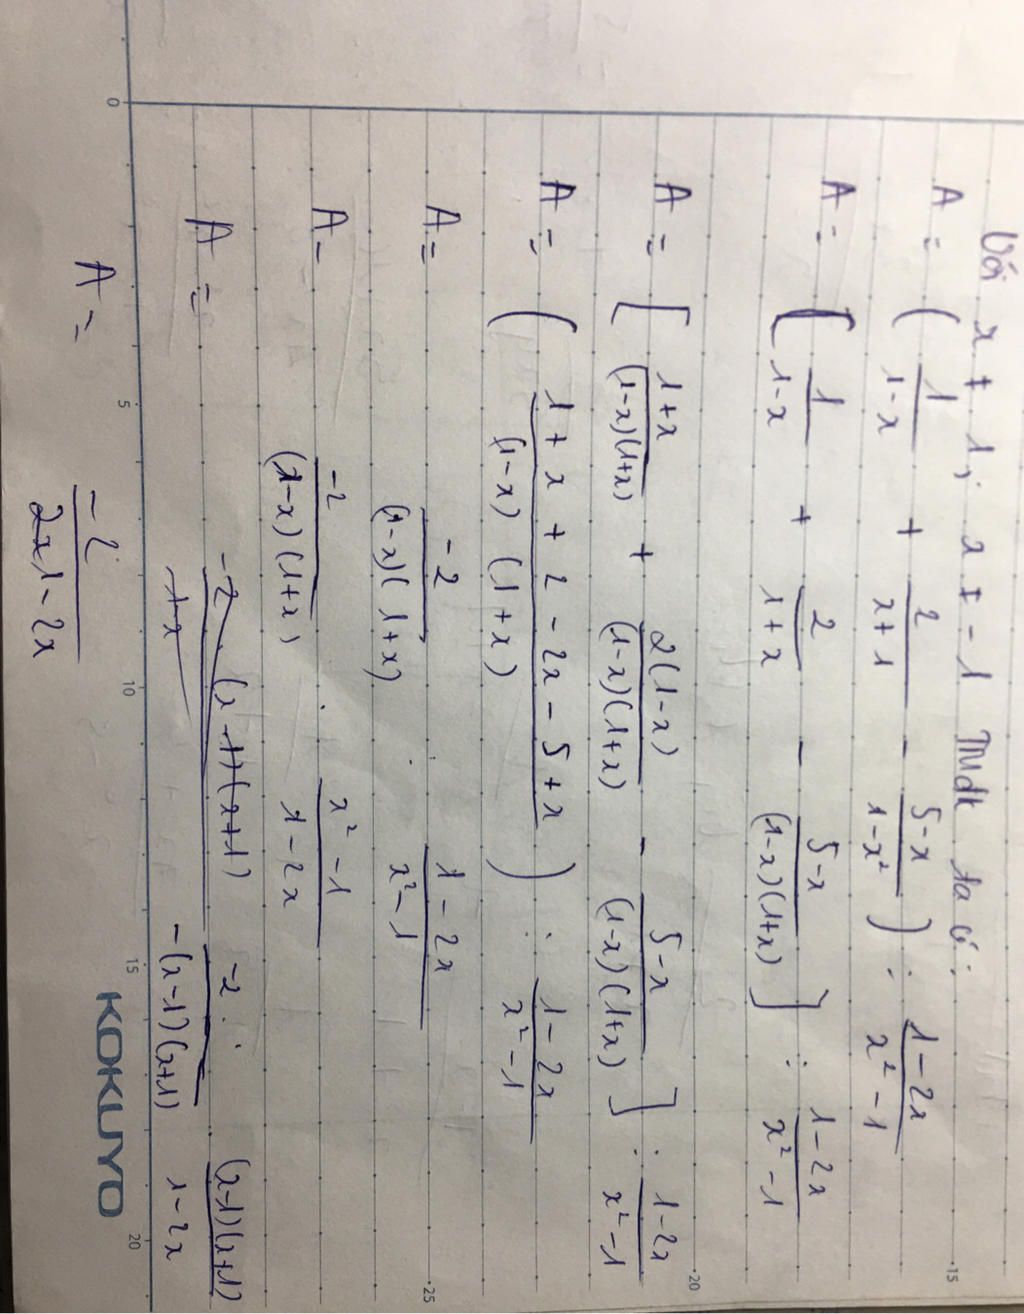 Với x ≠ 1; x ≠ -1 Mđk ta có:
A = ( 1/(1-x) + 2/(x+1) - (5-x)/(1-x²) ) : (1-2x)/(x²-1)
A = [ 1/(1-x) + 2/(1+x) - (5-x)/((1-x)(1+x)) ] : (1-2x)/(x²-1)
A = [ (1+x)/((1-x)(1+x)) + 2(1-x)/((1-x)(1+x)) - (5-x)/((1-x)(1+x)) ] : (1-2x)/(x²-1)
A = ( (1+x+2-2x-5+x)/((1-x)(1+x)) ) : (1-2x)/(x²-1)
A = -2/((1-x)(1+x)) : (1-2x)/(x²-1)
A = -2/((1-x)(1+x)) · (x²-1)/(1-2x)
A = -2(x-1)(x+1)/1+x -2/(-(x-1)(x+1)) : (x-1)(x+1)/(1-2x)
A = -2/(2x1-2x)
0 5 10 15 20
15
20
25
KOKUYO